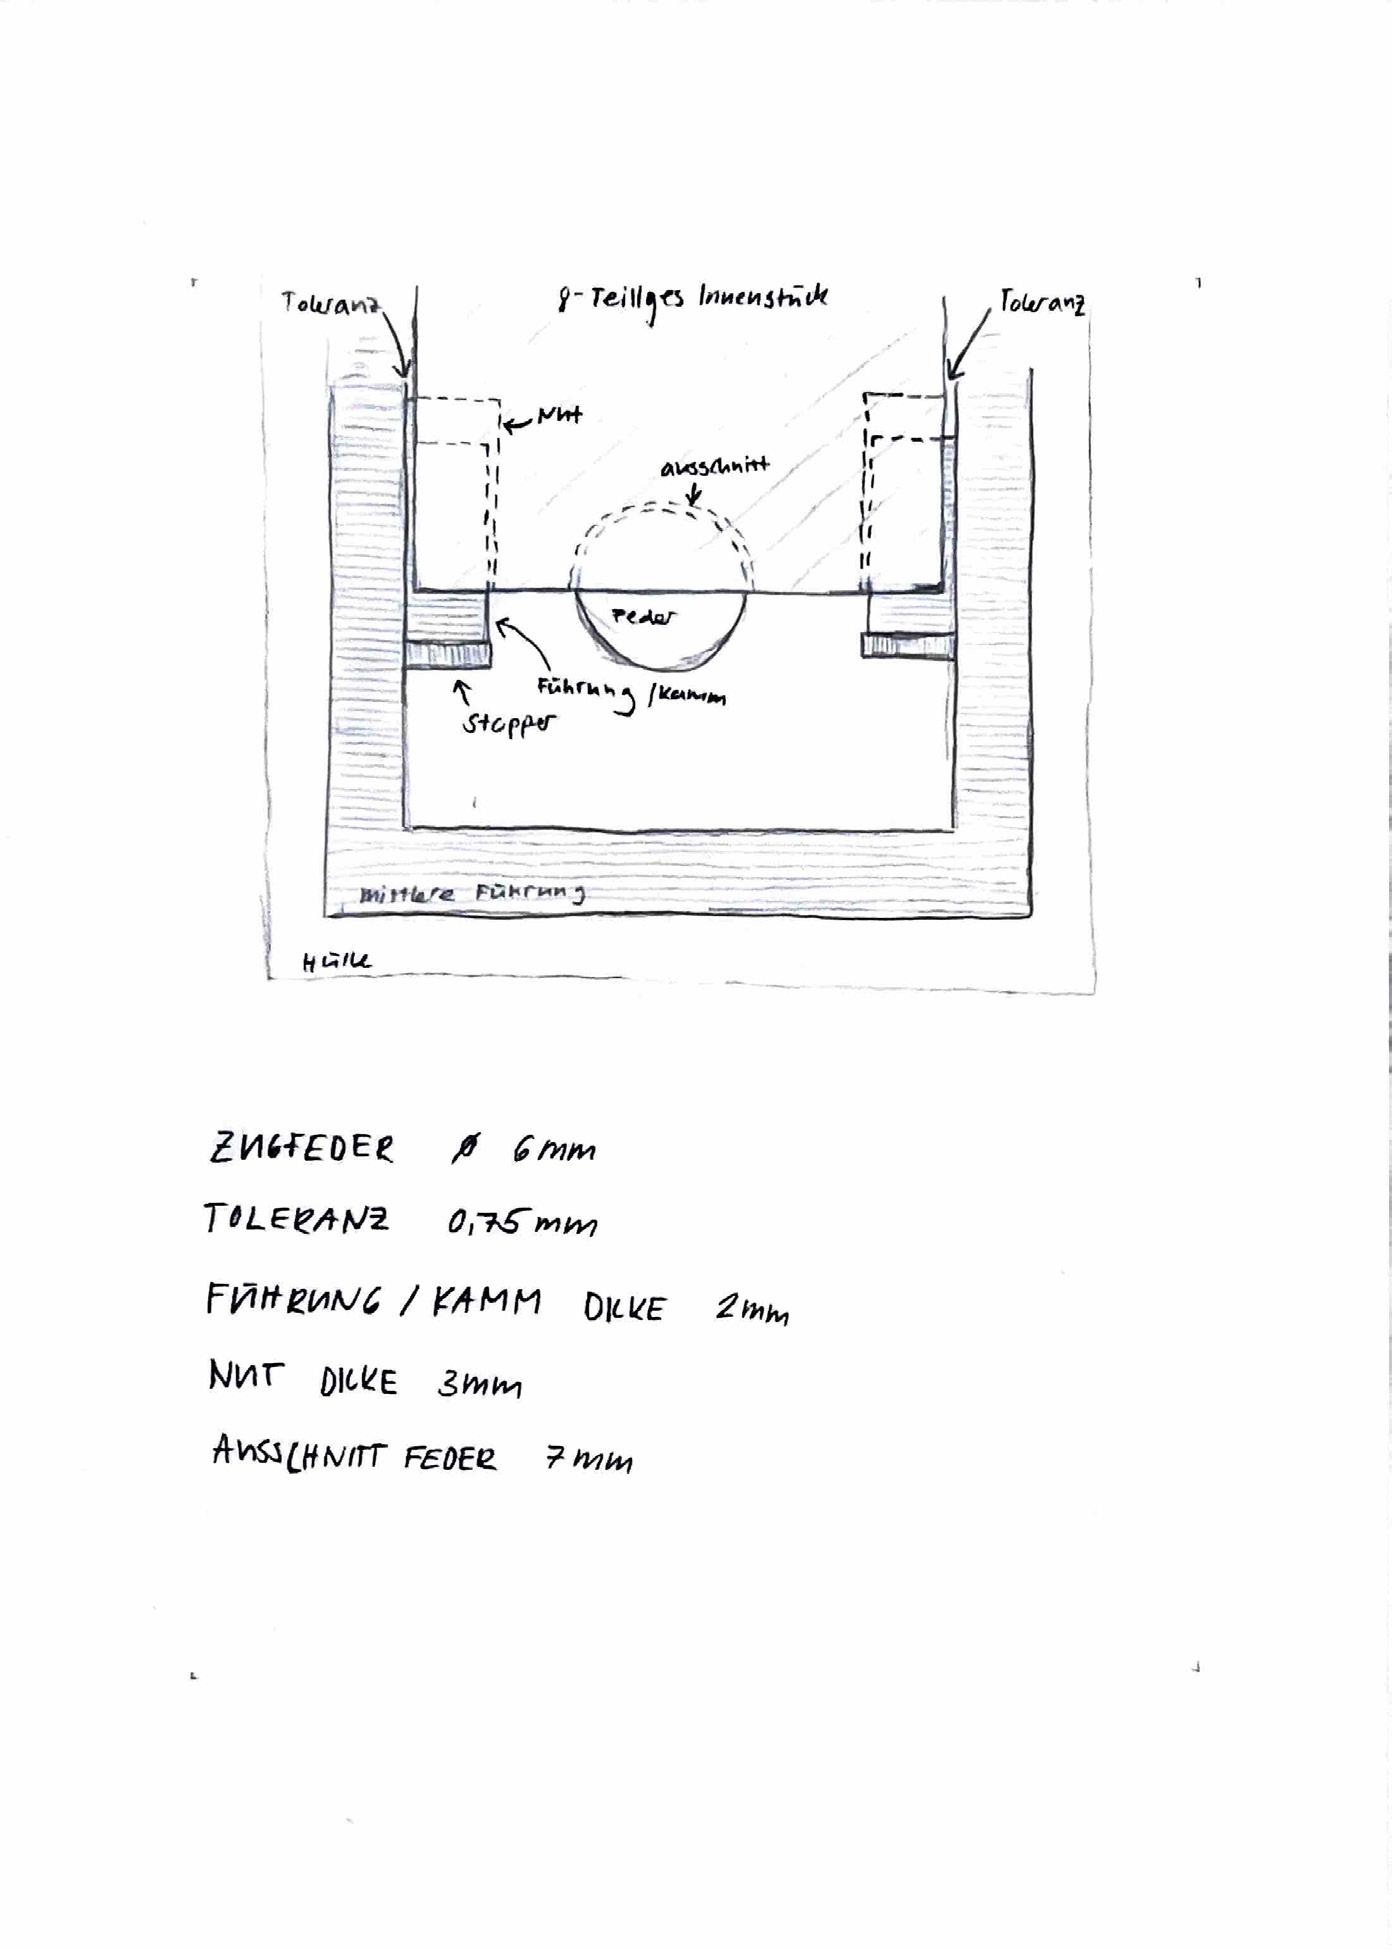 Toleranz
8-Teiliges Innenstück
Toleranz
Nut
Ausschnitt
Feder
Führung / Kamm
Stopper
mittlere Führung
Hülle
ZUGFEDER ø 6mm
TOLERANZ 0,75mm
FÜHRUNG / KAMM DICKE 2mm
NUT DICKE 3mm
AUSSCHNITT FEDER 7mm